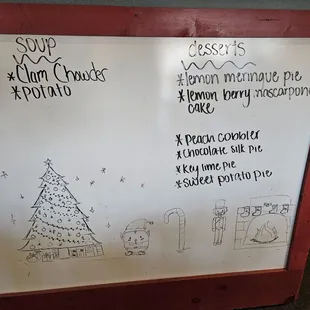 soup
*Clam Chowder
*potato
desserts
*lemon meringue pie
*lemon berry mascarpone
cake
*Peach cobbler
*Chocolate silk pie
*Key lime pie
*Sweet potato pie